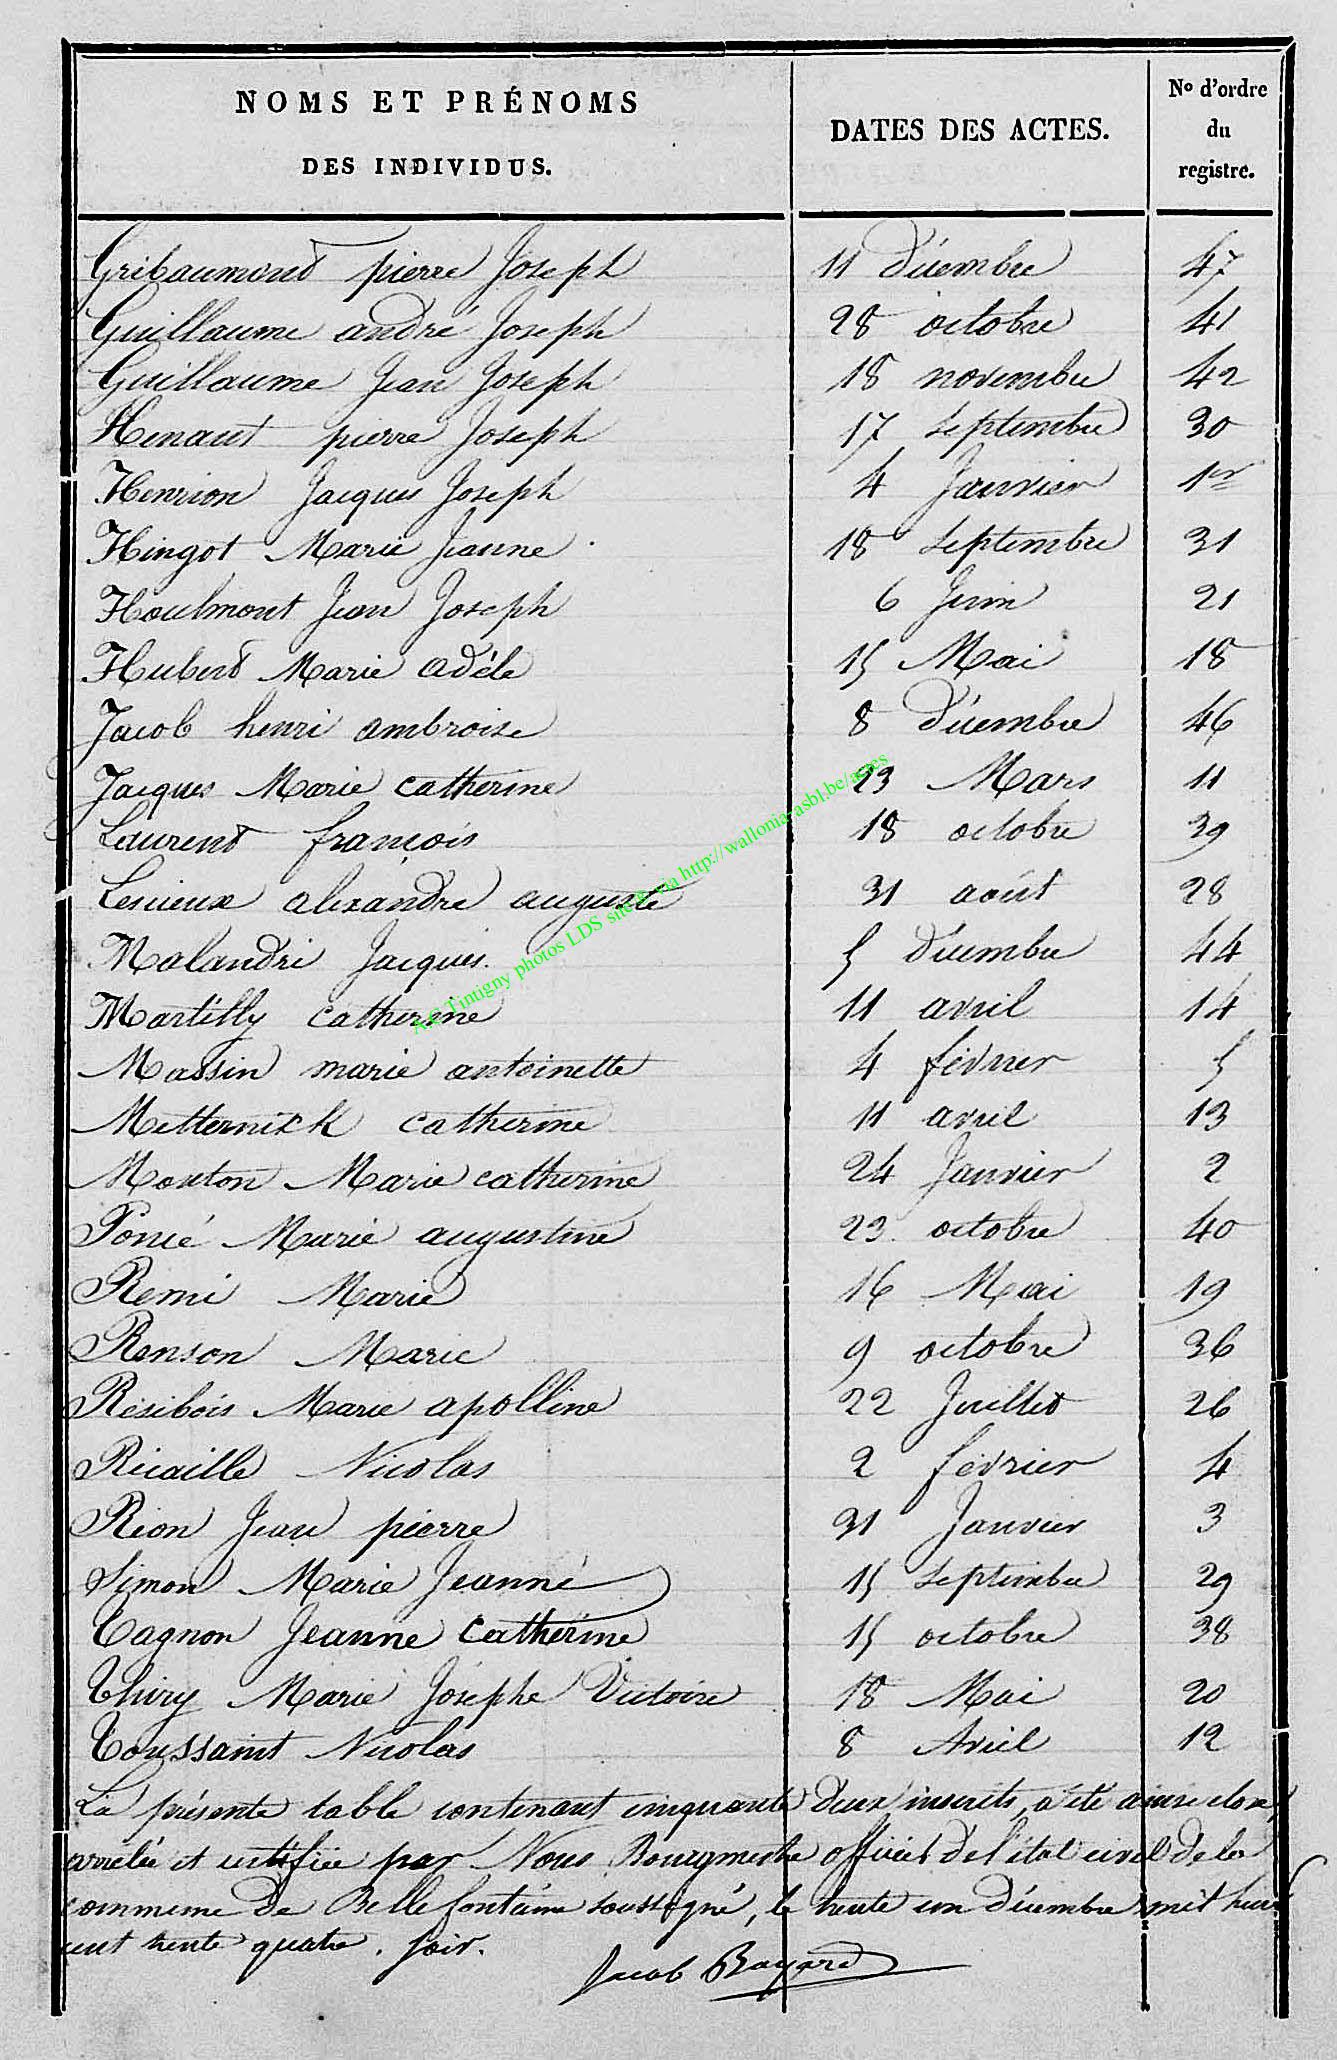 NOMS ET PRÉNOMS
DES INDIVIDUS.
DATES DES ACTES.
No d'ordre
du
registre.
Gribaumont pierre Joseph 11 décembre 47
Guillaume andré Joseph 28 octobre 41
Guillaume Jean Joseph 18 novembre 42
Henaut pierre Joseph 17 septembre 30
Henrion Jacques Joseph 4 Janvier 1er
Hingot Marie Jeanne 18 septembre 31
Houlmont Jean Joseph 6 Juin 21
Hubert Marie adèle 15 Mai 18
Jacob henri ambroise 8 décembre 46
Jacques Marie catherine 23 Mars 11
Laurent françois 18 octobre 39
Lecuieux alexandre auguste 31 août 28
Malandri Jacques 5 décembre 44
Martilly catherine 11 avril 14
Massin marie antoinette 4 février 5
Metternixk catherine 11 avril 13
Mouton Marie catherine 24 Janvier 2
Poncé Marie augustine 23 octobre 40
Remi Marie 16 Mai 19
Renson Marie 9 octobre 36
Résibois Marie apolline 22 Juillet 26
Ricaille Nicolas 2 février 4
Rion Jean pierre 31 Janvier 3
Simon Marie Jeanne 15 septembre 29
Tagnon Jeanne catherine 15 octobre 38
Thiry Marie Josèphe Victoire 18 Mai 20
Toussaint Nicolas 8 Avril 12
La présente table contenant cinquante deux inscrits, a été ainsi close,
arrêtée et certifiée par Nous Bourgmestre officier de l'état civil de la
commune de Bellefontaine soussigné, le trente un décembre mil huit
cent trente quatre. soir.
Jacob Bayard
A.C. Tintigny photos LDS site g. via http://wallonia-asbl.be/actes